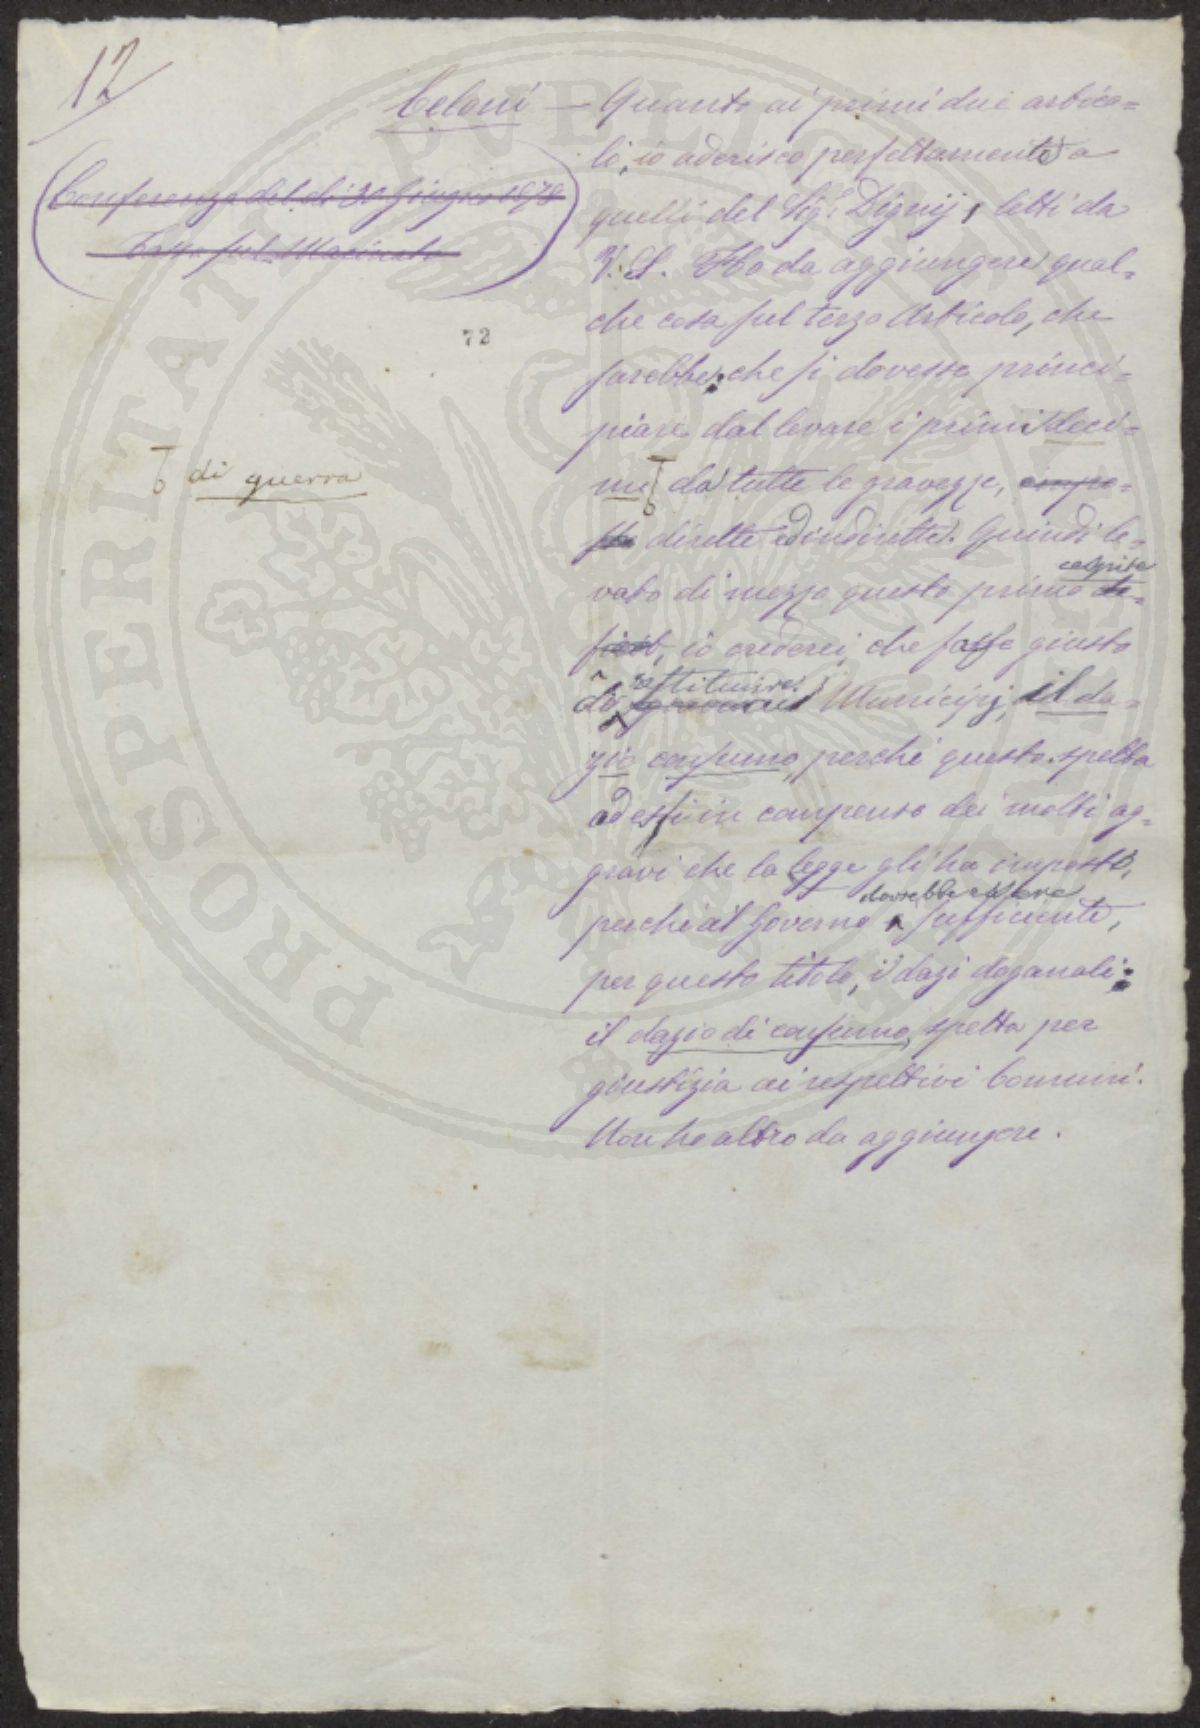 12
Celoni — Quanto ai primi due artico=
li, io aderisco perfettamente a
Conferenza del dì 30 Giugno 1879
Tassa sul Macinato
quelli del Sig. Dignij, letti da
V. S. Ho da aggiungere qual=
che cosa sul terzo Articolo, che
72
sarebbe: che si dovesse princi=
piare dal levare i primi deci=
di guerra
mi da tutte le gravezze, impo=
ste dirette ed indirette. Quindi le=
vato di mezzo questo primo
io crederei, che fosse giusto
di restituire ai Municipj, il da=
zio consumo, perchè questo spetta
ad essi in compenso dei molti ag=
gravi che la legge gli ha imposti,
dovrebbe essere
perchè al Governo sufficiente,
per questo titolo, i dazi doganali:
il dazio di consumo, spetta per
giustizia ai respettivi Comuni.
Non ho altro da aggiungere.
PROSPERITATI PVBLICAE